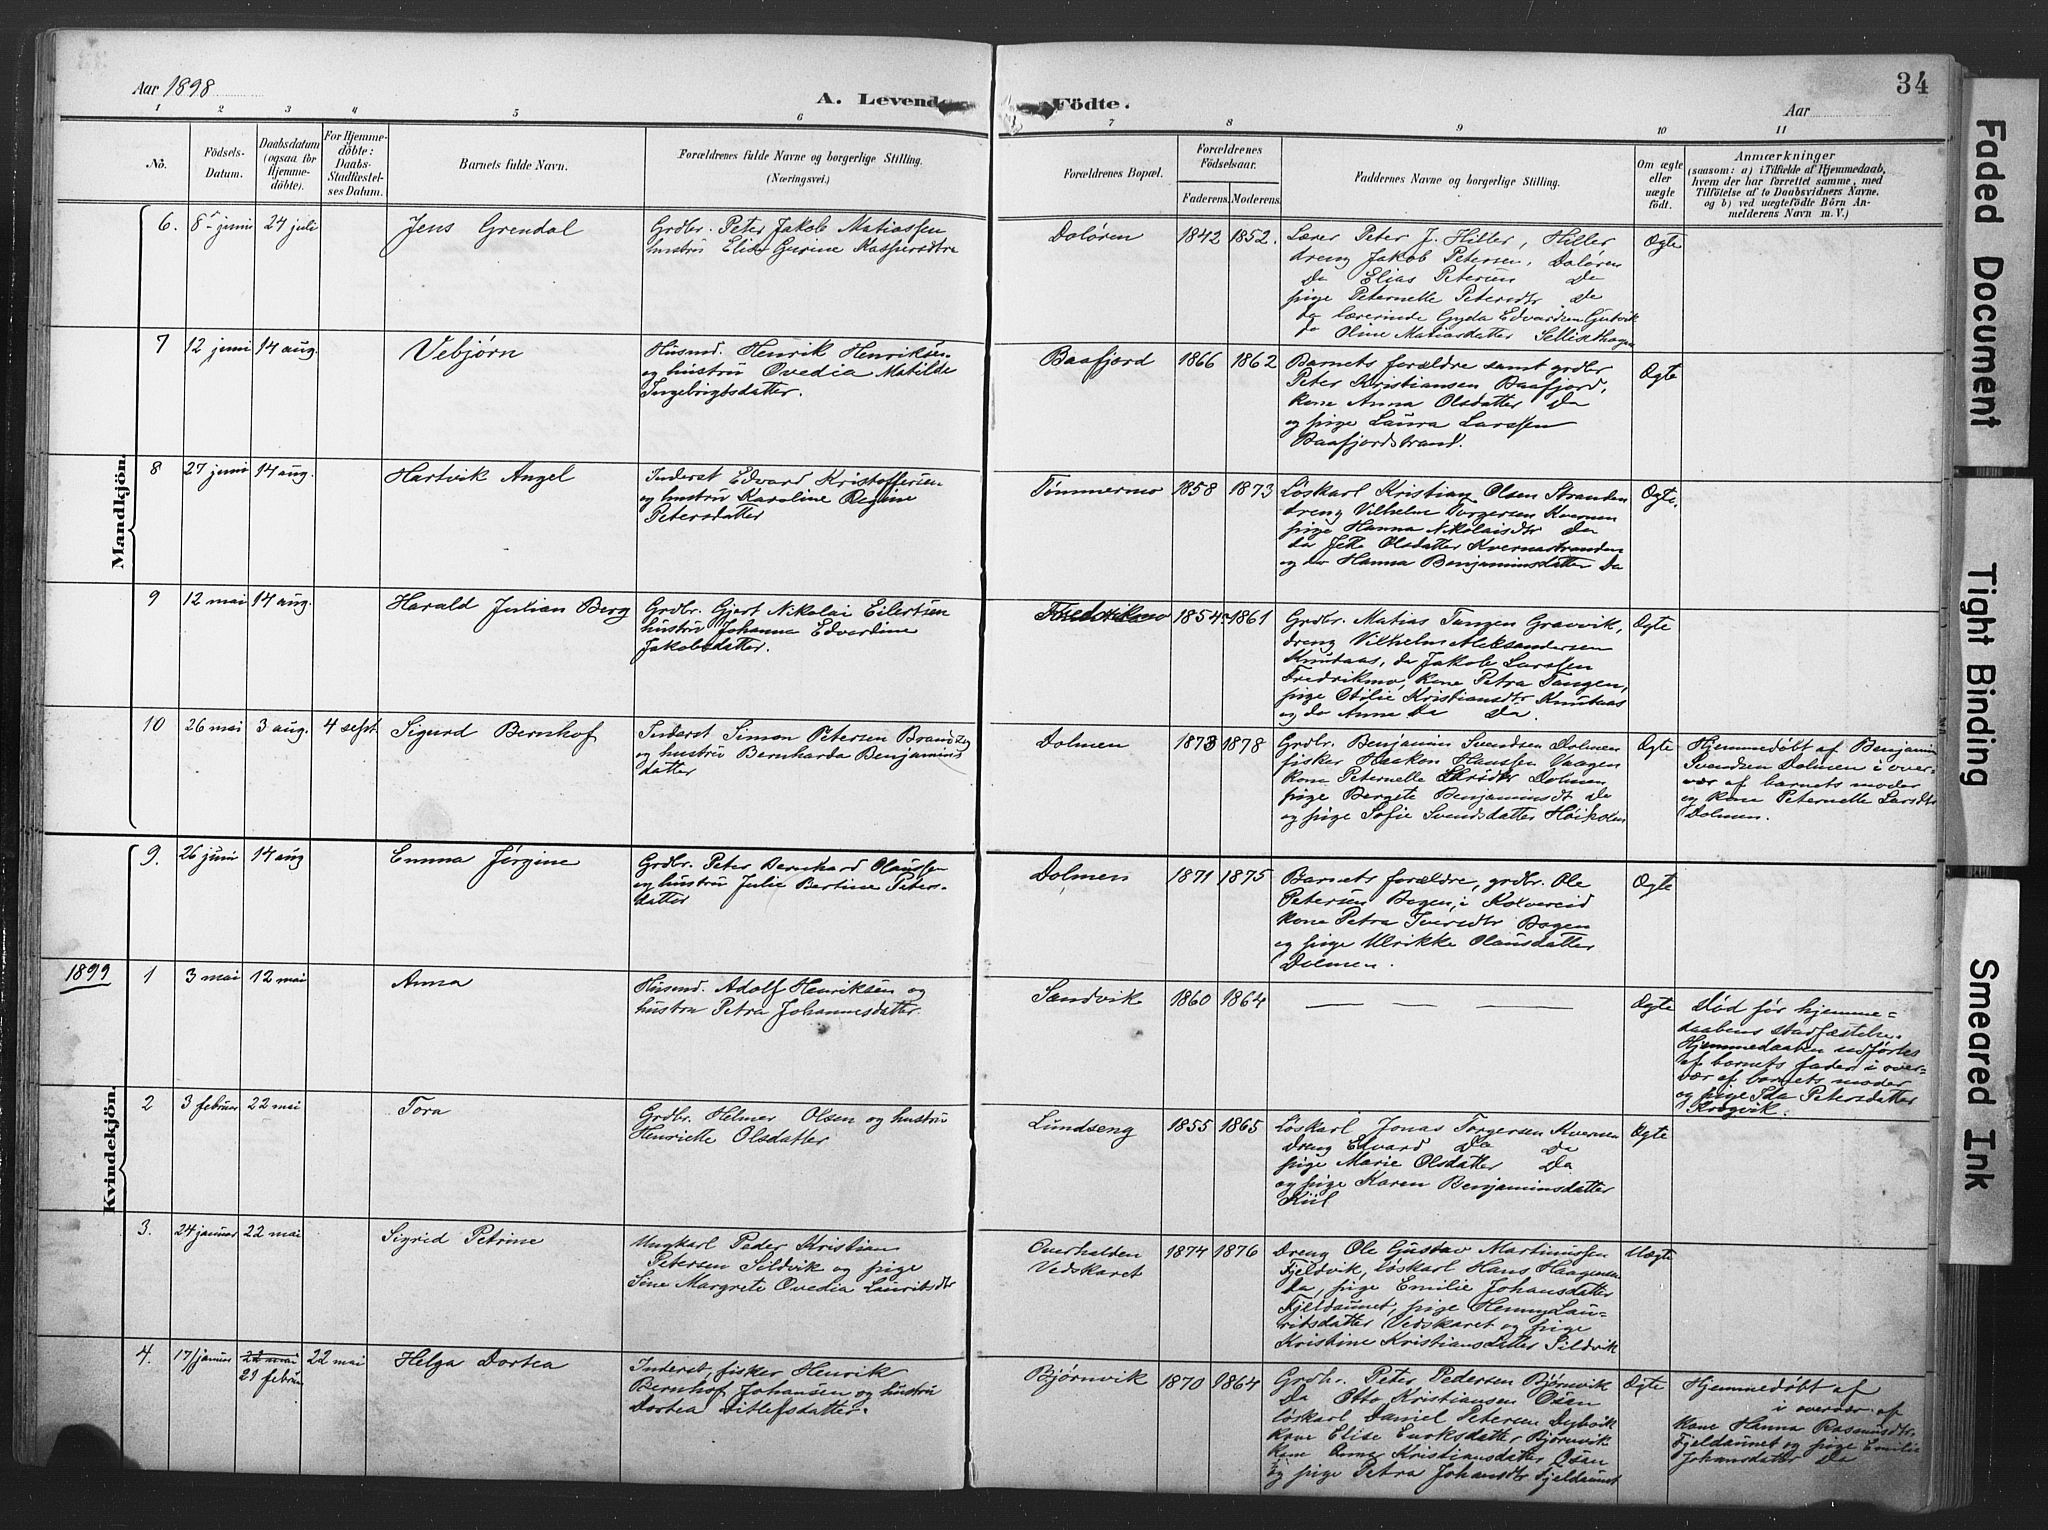 34
Aar 1898
A. Levende Födte.
Aar
1 2 3 4 5 6 7 8 9 10 11
No.
Födsels-
Datum.
Daabsdatum
(ogsaa for
Hjemme-
döbte).
For Hjemme-
döbte:
Daabs-
Stadfæstel-
ses Datum.
Barnets fulde Navn.
Forældrenes fulde Navne og borgerlige Stilling.
(Næringsvei.)
Forældrenes Bopæl.
Forældrenes
Födselsaar.
Faderens. Moderens.
Faddernes Navne og borgerlige Stilling.
Om ægte
eller
uægte
födt.
Anmærkninger
(saasom: a) i Tilfælde af Hjemmedaab,
hvem der har forrettet samme, med
Tilföielse af to Daabsvidners Navne,
og b) ved uægtefödte Börn An-
melderens Navn m. V.)
Mandkjön.
6. 8 juni 24 juli
Jens Grendal
Grdbr. Peter Jakob Matiassen
hustru Elida Gurine Kaspersdtr
Doløren
1842 1852.
Lærer Peter J. Hiller, Hiller
dreng Jakob Petersen, Doløren
Do Elias Petersen Do
pige Peternelle Petersdtr Do
do lærerinde Gyda Edvardsen Gutvik
do Oline Matiasdatter
Ægte
7 12 juni 14 aug.
Vebjørn
Husmd. Henrik Henriksen
og hustru Ovedia Matilde
Ingebrigtsdatter.
Baafjord
1866 1862
Barnets forældre samt grdbr
Peter Kristiansen Baafjord,
kone Anna Olsdatter Do
og pige Laura Larssen
Baafjordstrand.
Ægte
8 27 juni 14 aug.
Hartvik Angel
Inderst Edvard Kristoffersen
og hustru Karoline Regine
Petersdatter
Tømmermo
1858 1873
Løskarl Kristian Olsen Stranden
dreng Vilhelm Torgersen Kvernen
pige Hanna Nikolaisdtr Do
do Jette Olsdatter Kvernastranden
og do Hanna Benjaminsdatter Do
Ægte.
9 12 mai 14 aug.
Harald Julian Berg
Grdbr. Gjert Nikolai Eilertsen
hustru Johanna Edvardine
Jakobsdatter.
Fredrikmo
1854 1861
Grdbr. Matias Tangen Gravvik,
dreng Vilhelm Aleksandersen
Knutaas, do Jakob Larssen
Fredrikmo, kone Petra Tangen,
pige Otilie Kristiansdtr Knutaas
og do Anna Do Do.
Ægte
10 26 mai 3 aug. 4 sept.
Sigurd Bernhof
Inderst Simon Petersen
og hustru Bernharda Benjamins
datter
Dolmen
1873 1878
Grdbr. Benjamin Svendsen Dolmen
fisker Haakon Hanssen Vaagen
kone Peternelle Dolmen
pige Bergete Benjaminsdt Do
og pige Sofie Svendsdatter Høiholm
Ægte
Hjemmedøbt af Benjamin
Svendsen Dolmen i over-
vær af barnets moder
og kone Peternelle Larsdtr
Dolmen.
9. 26 juni 14 aug
Emma Jørgine
Grdbr. Peter Bernhard Olaussen
og hustru Julie Bertine Peters-
datter
Dolmen
1871 1875
Barnets forældre, grdbr. Ole
Petersen Bogen, i Kolvereid
kone Petra Iversdtr Bogen
og pige Ulrikke Olausdatter
Dolmen.
Ægte
1899
Kvindekjön.
1 3 mai 12 mai
Anna
Husmd. Adolf Henriksen og
hustru Petra Johannesdatter.
Sandvik
1860 1864
— — —
Ægte
Død før hjemme-
daabens stadfæstelse.
Hjemmedaaben udførtes
af barnets fader i over-
vær af barnets moder
og pige Ida Petersdatter
Krogvik.
2 3 februar 22 mai
Tora
Grdbr. Helmer Olsen og hustru
Henriette Olsdatter
Lundseng
1855 1865
Løskarl Jonas Torgersen Kvernen
Dreng Edvard Do Do
pige Marie Olsdatter Do
og pige Karen Benjaminsdatter
Kiil
Ægte
3. 24 januar 22 mai
Sigrid Petrine
Ungkarl Peder Kristian
Petersen Sildvik og pige
Sine Margrete Ovedia Lauritsdtr
Overhalden
Vedskaret
1874 1876
Dreng Ole Gustav Martinussen
Fjeldvik, løskarl Hans Haagensen
Do pige Emilie Johansdatter
Fjeldaunet, pige Henny Lau-
ritsdatter Vedskaret og pige
Kristine Kristiansdatter Sildvik
Uægte
4. 17 januar 22 mai 29 februar 22 mai
Helga Dortea
Inderst, fisker Henrik
Bernhof Johansen og hustru
Dortea Ditlefsdatter.
Bjørnvik
1870 1864
Grdbr. Peter Pedersen Bjørnvik
Do Otto Kristiansen Osen
løskarl Daniel Petersen Dybvik
kone Elise Enoksdatter Bjørnvik
kone Anna Kristiansdatter Osen
og pige Petra Johansdtr Fjeldaunet
Ægte
Hjemmedøbt af
i overvær af
kone Hanna Rasmusdtr
Fjeldaunet og pige Emilie
Johansdatter Do
Faded Document
Tight Binding
Smeared Ink